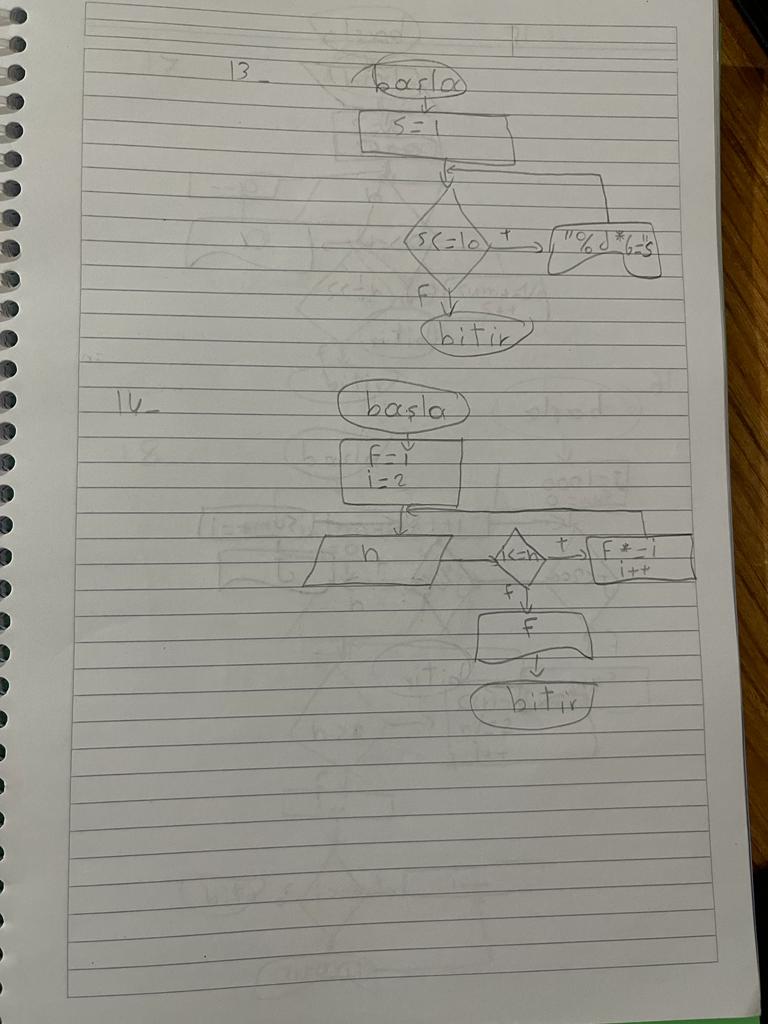 13_
başla
s=1
s<=10
+
"%d*6="s
F
bitir
14_
başla
F=1
i=2
n
i<=n
+
F*=i
i++
f
F
bitir